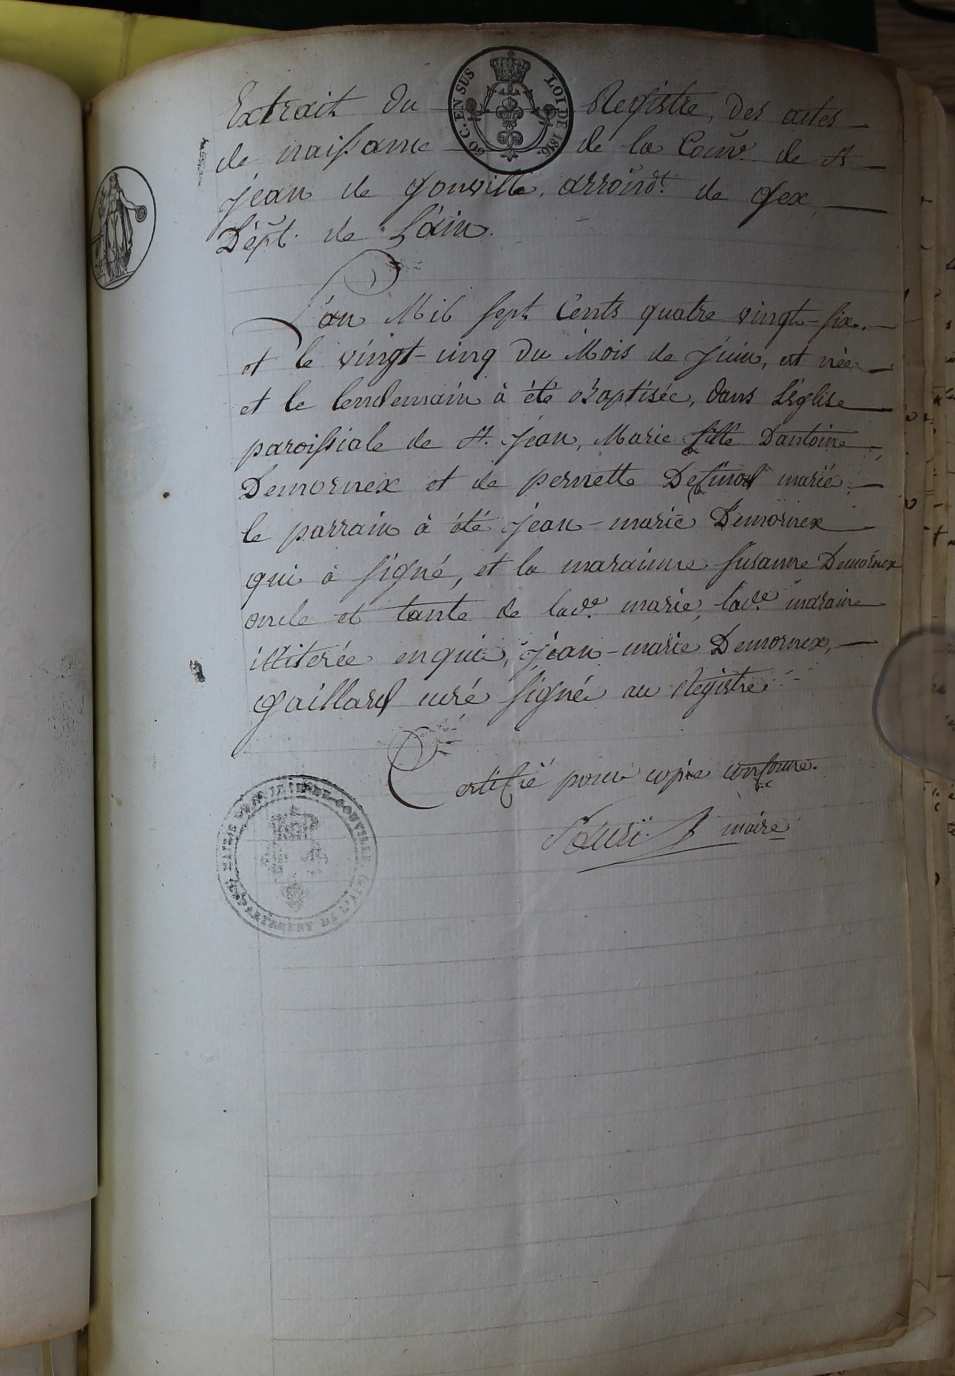 Extrait du Registre, des actes
de naissance de la Com̃e de St
jean de gonville, arrond.t de Gex,
Dépt. de L'ain.
50 C. EN SUS
LOI DE 1816.
L'an Mil sept Cents quatre vingt-six.
et le vingt-cinq du Mois de juin, est née
et le lendemain à été Baptisée, dans L'église
paroissiale de St. jean, Marie fille D'antoine
Demornex et de pernette mariés
le parrain à été jean-marie Demornex
qui à signé, et la maraine susanne Demornex
oncle et tante de lad.e marie, lad.e maraine
illiterée enquie, jean-marie Demornex,
gaillard curé signé au Registre
Certifié pour copie conforme.
maire
MAIRIE DE ST JEAN DE GONVILLE
DÉPARTEMENT DE L'AIN